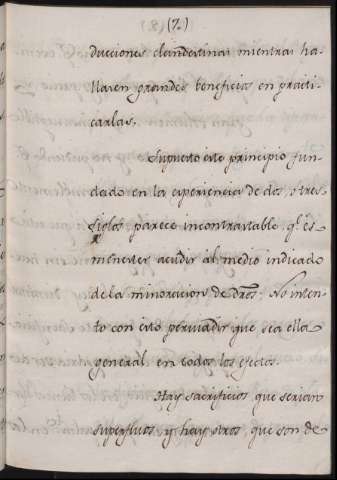 (7.)
ducciones clandestinas mientras ha-
llaren grandes beneficios en practi-
carlas.
Supuesto este principio fun-
dado en la experiencia de dos, o tres
siglos parece incontrastable q.e es
menester acudir al medio indicado
de la minoracion de dr̃os: No inten-
to con esto persuadir que sea ella
general en todos los efectos.
Hay sacrificios que serian
superfluos y hay otros, que son de